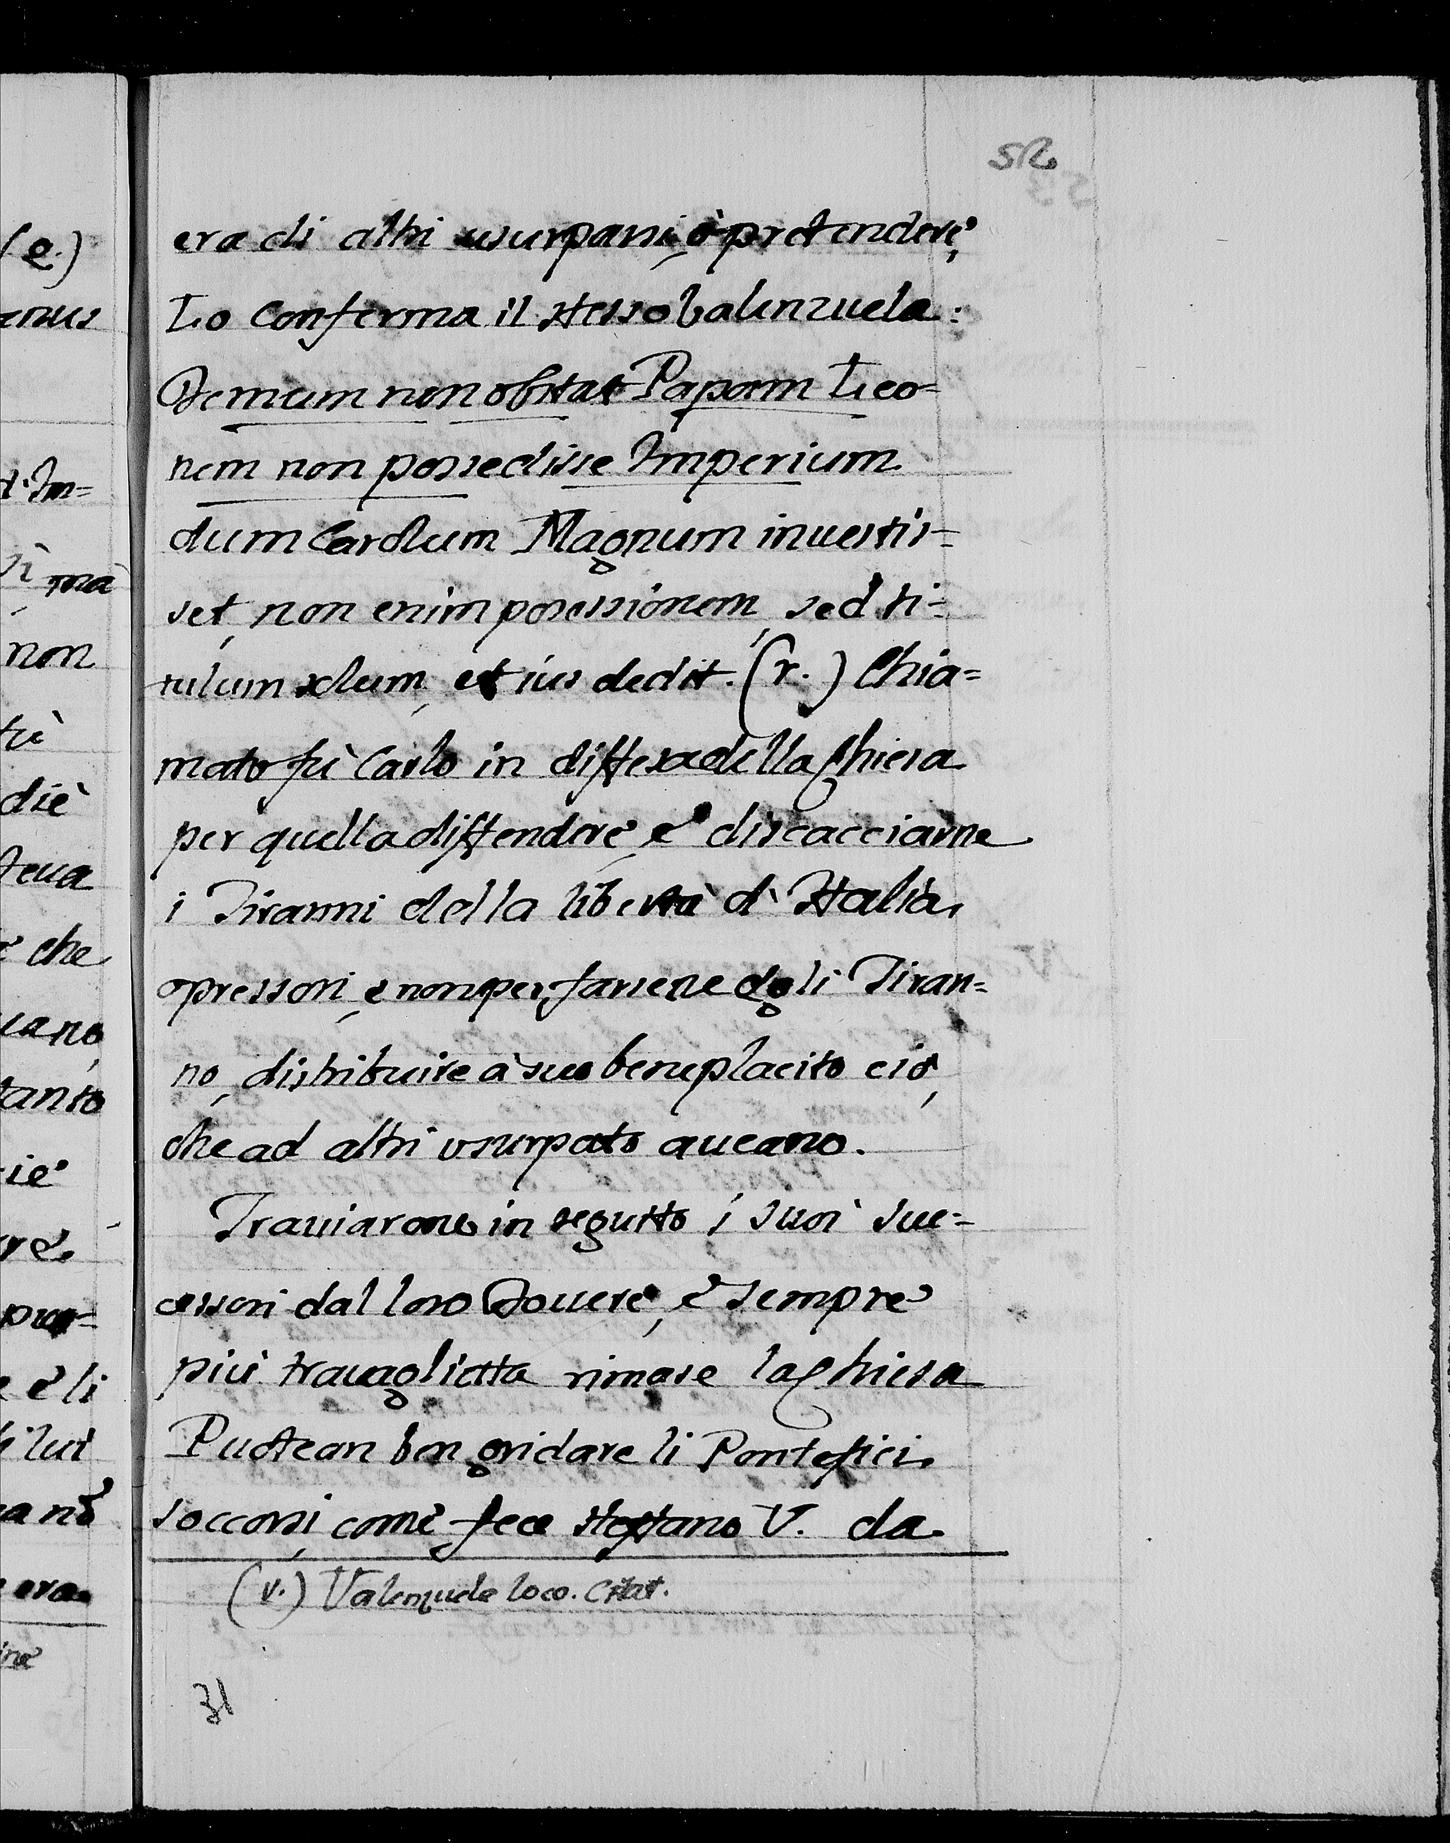 52
era di altri usurparsi, ò pretendere,
Lo conferma il stesso Valenzuela:
Demum non obstat Papam Leo-
nem non possedisse Imperium
dum Carolum Magnum inuestis-
set, non enim possessionem, sed ti-
tulum solum, et ius dedit. (r.) Chia-
mato fù Carlo in diffesa della Chiesa
per quella diffendere, e discacciarne
i Tiranni della libertà d' Italia
opressori, e non per farsene egli Tiran-
no, distribuire à suo beneplacito ciò,
che ad altri vsurpato aueano.
Trauiarono in seguito i suoi suc-
cessori dal loro Douere, e sempre
più trauagliatta rimase la Chiesa
Puotean ben gridare li Pontefici
soccorsi, come fece steffano V. da
(r.) Valenzuela loco. Citat.
31
(e.)
non
diè
che
tanto
e li
era